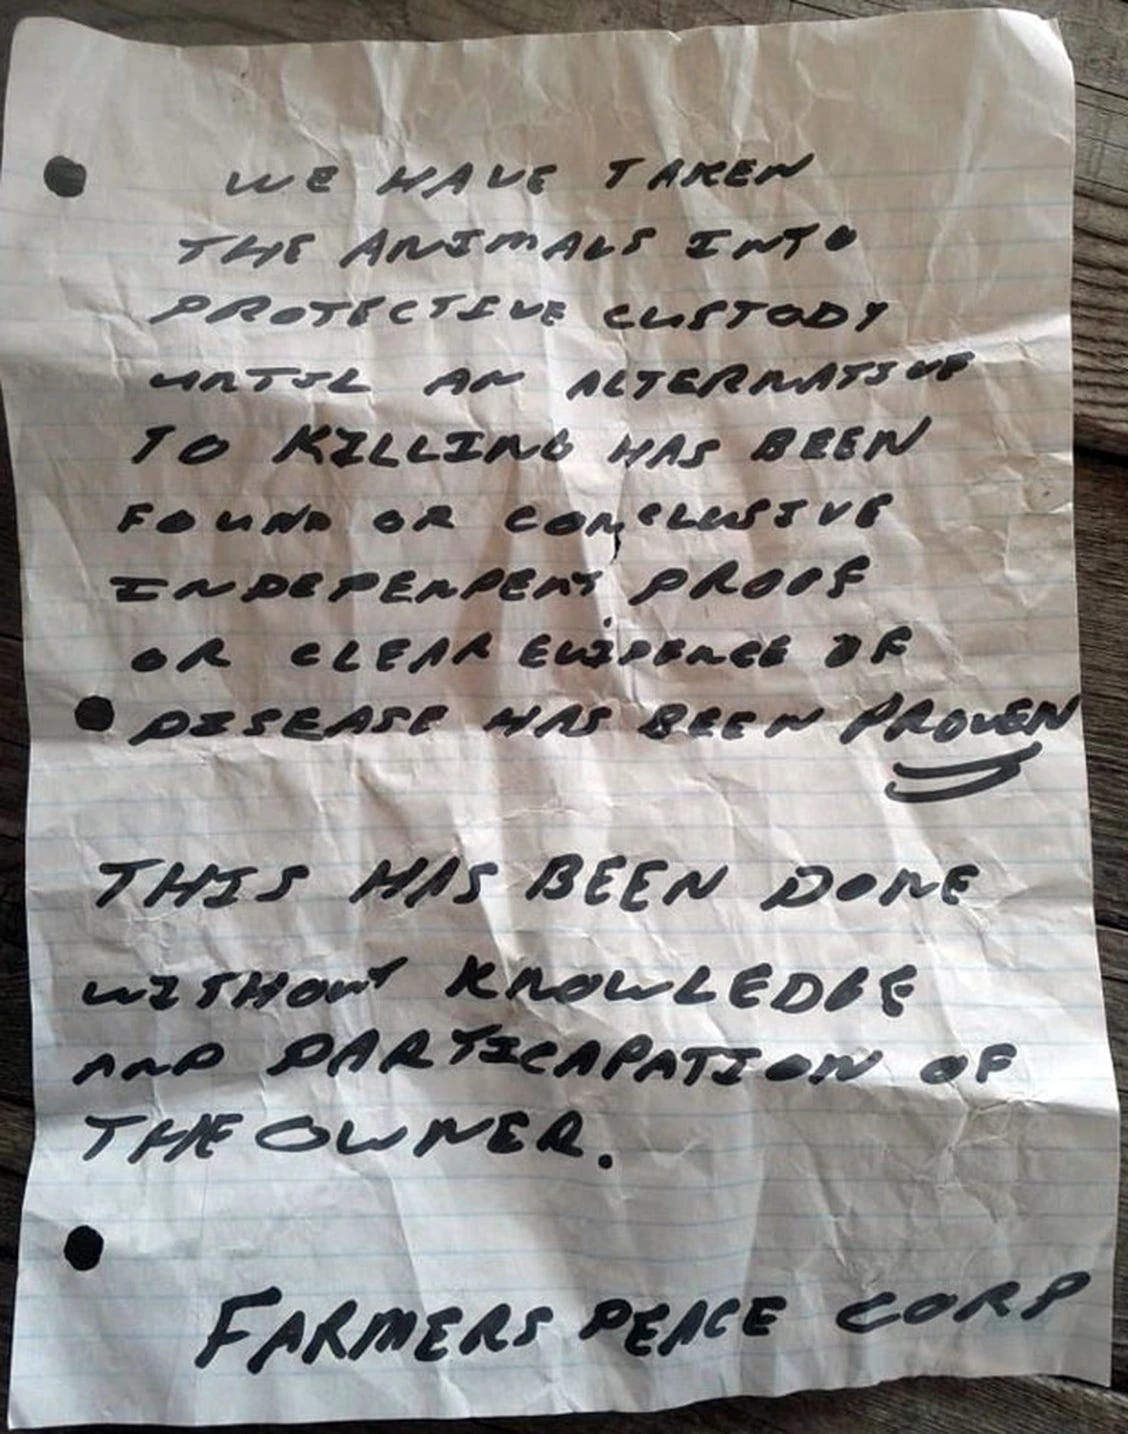 WE HAVE TAKEN
THE ANIMALS INTO
PROTECTIVE CUSTODY
UNTIL AN ALTERNATIVE
TO KILLING HAS BEEN
FOUND OR CONCLUSIVE
INDEPENDENT PROOF
OR CLEAR EVIDENCE OF
DISEASE HAS BEEN PROVEN
THIS HAS BEEN DONE
WITHOUT KNOWLEDGE
AND PARTICAPATION OF
THE OWNER.
FARMERS PEACE CORP